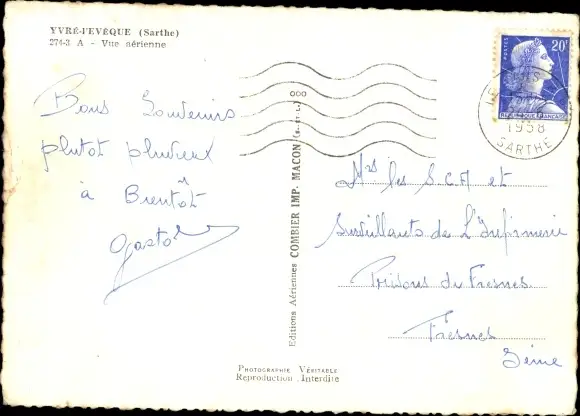 YVRÉ-l'EVÊQUE (Sarthe)
274-3 A - Vue aérienne
Bons Souvenirs
plutot pluvieux
à Bientôt
Gaston
Editions Aériennes COMBIER IMP. MACON (S.-et-L.)
PHOTOGRAPHIE VÉRITABLE
Reproduction Interdite
POSTES
20F
REPUBLIQUE FRANÇAISE
1958
SARTHE
Mrs les S.C.A et
Surveillants de L'Infirmerie
Prisons de Fresnes
Fresnes
Seine